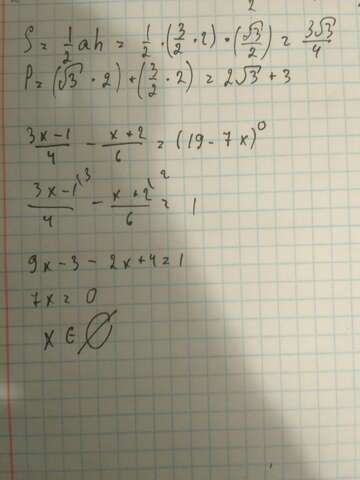 2
S = 1/2 ah = 1/2 · (3/2 · 2) · (√3/2) = 3√3/4
P = (√3 · 2) + (3/2 · 2) = 2√3 + 3
(3x - 1)/4 - (x + 2)/6 = (19 - 7x)^0
(3x - 1)/4 ^(3 - (x + 2)/6 ^(2 = 1
9x - 3 - 2x + 4 = 1
7x = 0
x ∈ ∅